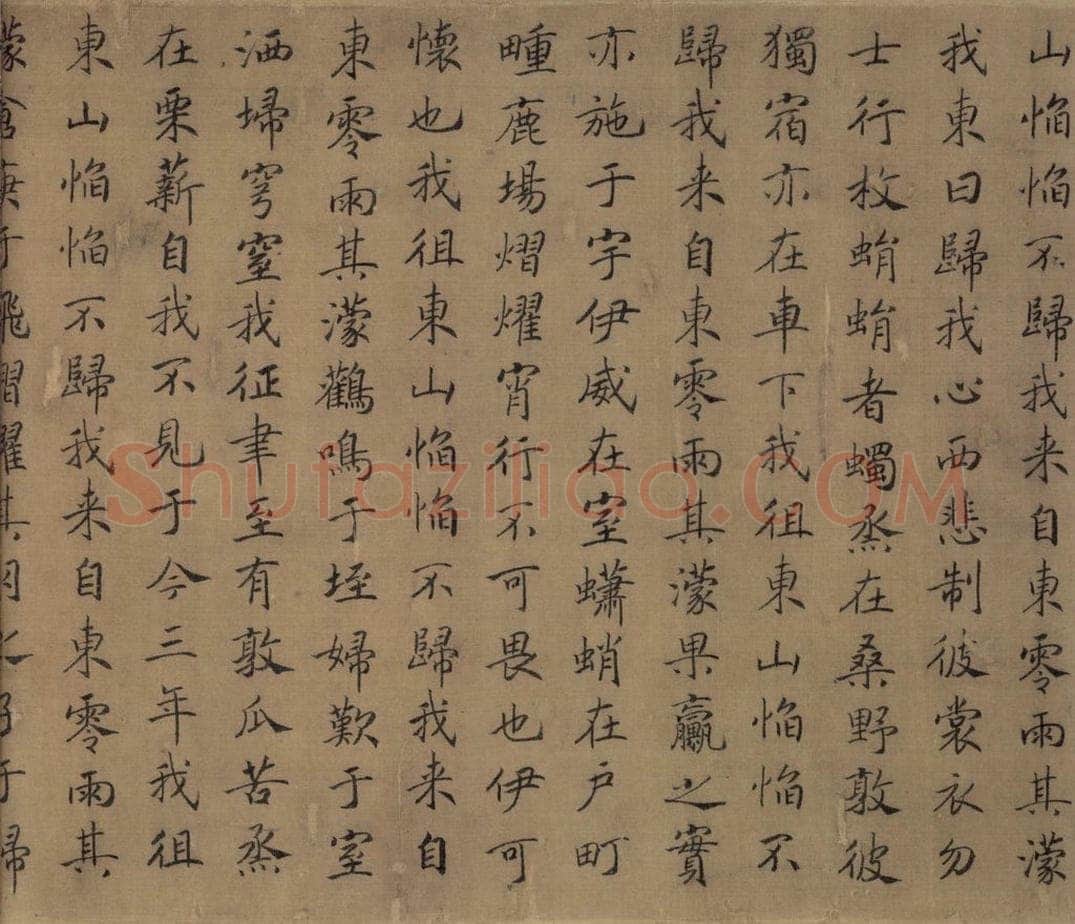 山慆慆不歸我来自東零雨其濛
我東曰歸我心西悲制彼裳衣勿
士行枚蜎蜎者蠋烝在桑野敦彼
獨宿亦在車下我徂東山慆慆不
歸我来自東零雨其濛果臝之實
亦施于宇伊威在室蠨蛸在戶町
畽鹿場熠燿宵行不可畏也伊可
懷也我徂東山慆慆不歸我来自
東零雨其濛鸛鳴于垤婦歎于室
洒埽穹窒我征聿至有敦瓜苦烝
在栗薪自我不見于今三年我徂
東山慆慆不歸我来自東零雨其
濛倉庚于飛熠燿其羽之子于歸
Shufaziliao.COM